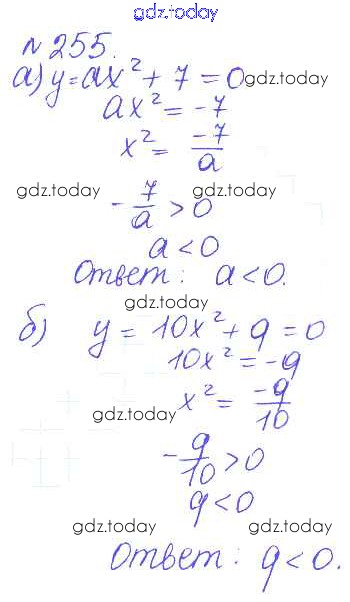 gdz.today
№255.
а) y=ax²+7=0 gdz.today
ax²=-7
x²= -7/a
gdz.today gdz.today
-7/a>0
a<0
Ответ: a<0.
gdz.today
б) y=10x²+q=0
10x²=-q
x²= -q/10
gdz.today
-q/10>0
q<0
gdz.today gdz.today
Ответ: q<0.